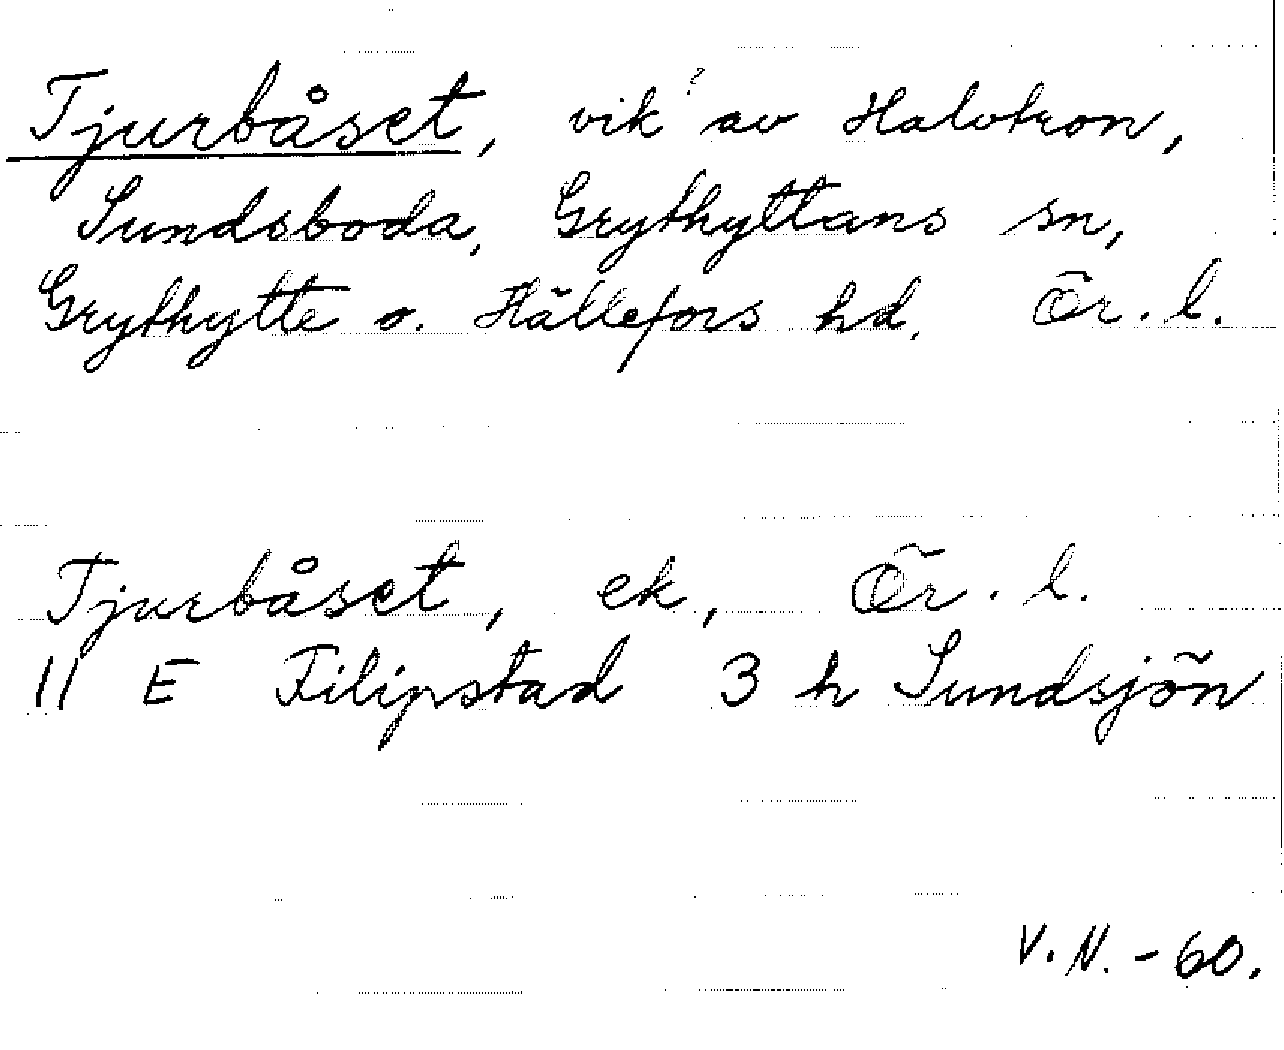 Tjurbåset, vik? av Halvtron,
Sundsboda, Grythyttans sn,
Grythytte o. Hällefors hd. Ör. l.
Tjurbåset, ek, Ör. l.
11 E Filipstad 3 h Sundsjön
V. N. - 60.